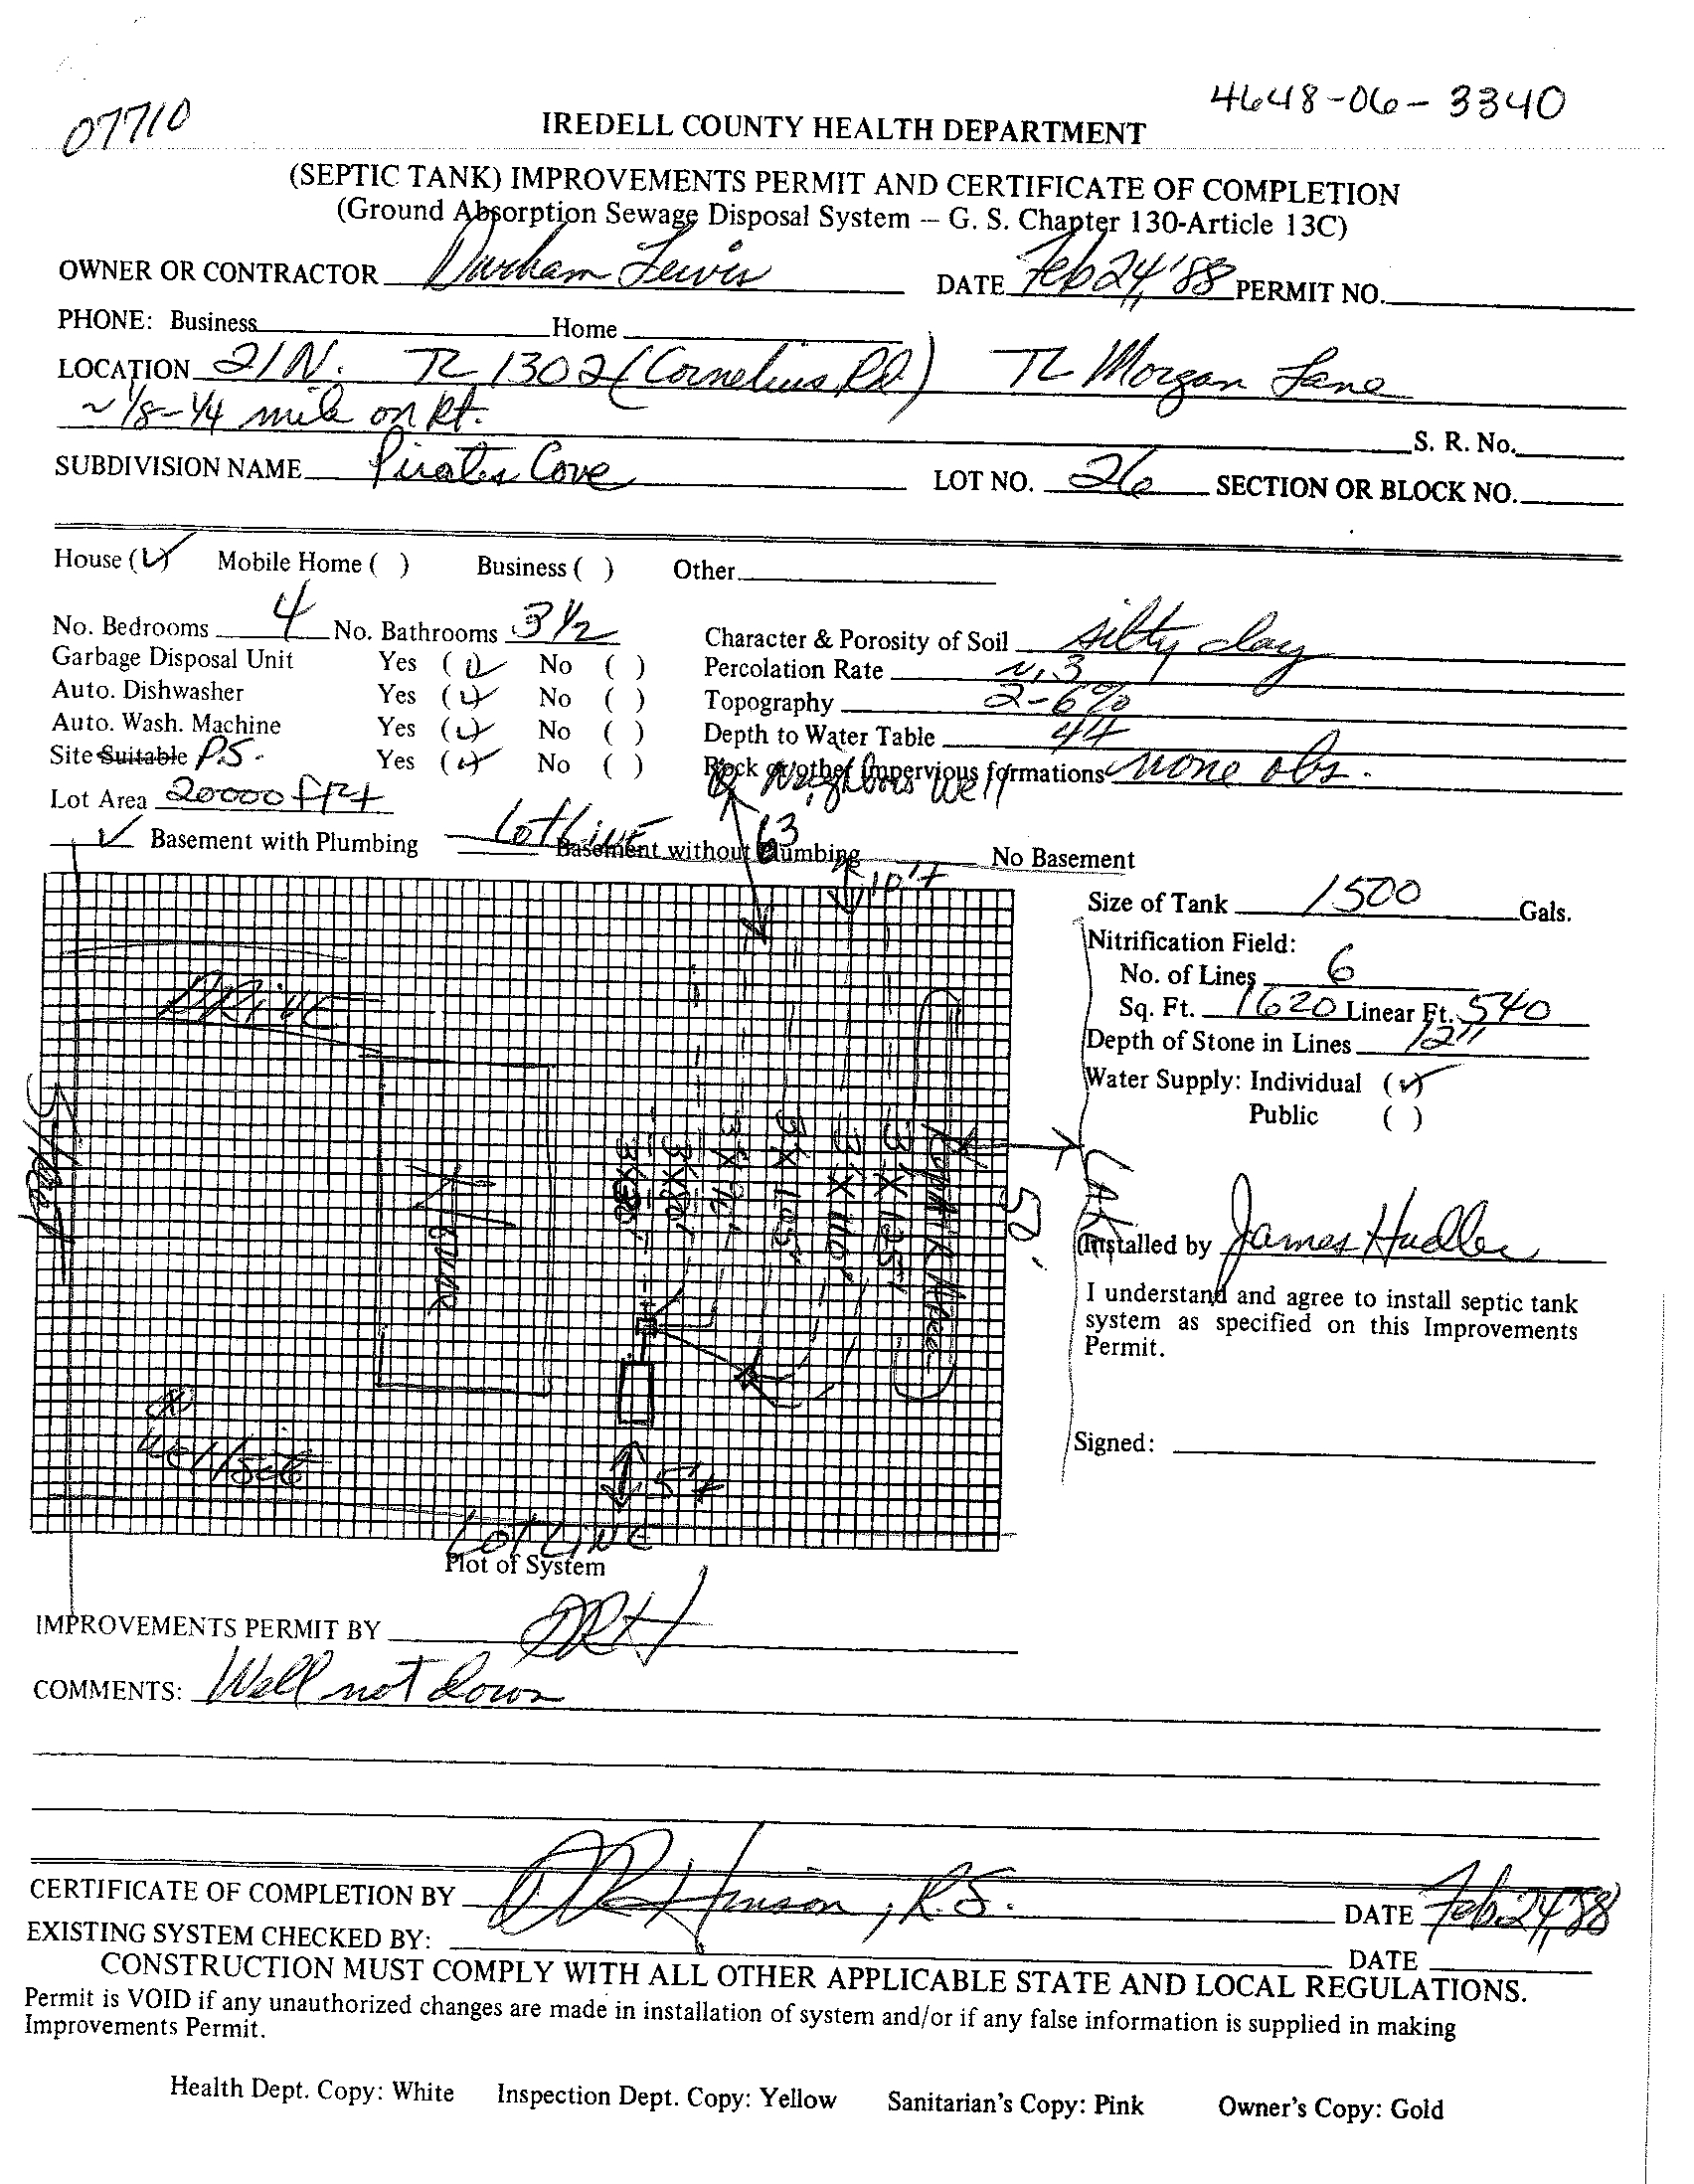 4648-06-3340
07710
IREDELL COUNTY HEALTH DEPARTMENT
(SEPTIC TANK) IMPROVEMENTS PERMIT AND CERTIFICATE OF COMPLETION
(Ground Absorption Sewage Disposal System – G. S. Chapter 130-Article 13C)
OWNER OR CONTRACTOR Durham Lewis DATE Feb 24, '88 PERMIT NO.
PHONE: Business Home
LOCATION 21 N. TL 1302 (Cornelius Rd.) TL Morgan Lane
~ 1/8 - 1/4 mile on Rt.
S. R. No.
SUBDIVISION NAME Pirates Cove LOT NO. 26 SECTION OR BLOCK NO.
House (✓) Mobile Home ( ) Business ( ) Other
No. Bedrooms 4 No. Bathrooms 3 1/2 Character & Porosity of Soil silty clay
Garbage Disposal Unit Yes (✓) No ( ) Percolation Rate ~.3
Auto. Dishwasher Yes (✓) No ( ) Topography 2-6%
Auto. Wash. Machine Yes (✓) No ( ) Depth to Water Table 44
Site Suitable P.S. Yes (✓) No ( ) Rock or other impervious formations none obs.
Neighbors Well
Lot Area 20000 ft²±
63
✓ Basement with Plumbing Basement without Plumbing No Basement
Lot Line
10'±
Size of Tank 1500 Gals.
Nitrification Field:
No. of Lines 6
Sq. Ft. 1620 Linear Ft. 540
Depth of Stone in Lines 12"
Water Supply: Individual (✓)
Public ( )
DRIVE
Street
House
3X105'
3X110'
3X125'
Repair Area
50'
LAKE
Well Site
5'±
LOT LINE
Installed by James Hudler
I understand and agree to install septic tank
system as specified on this Improvements
Permit.
Signed:
Plot of System
IMPROVEMENTS PERMIT BY DRH
COMMENTS: Well not down
CERTIFICATE OF COMPLETION BY DR Hinson, R.S. DATE Feb. 24, '88
EXISTING SYSTEM CHECKED BY: DATE
CONSTRUCTION MUST COMPLY WITH ALL OTHER APPLICABLE STATE AND LOCAL REGULATIONS.
Permit is VOID if any unauthorized changes are made in installation of system and/or if any false information is supplied in making
Improvements Permit.
Health Dept. Copy: White Inspection Dept. Copy: Yellow Sanitarian's Copy: Pink Owner's Copy: Gold